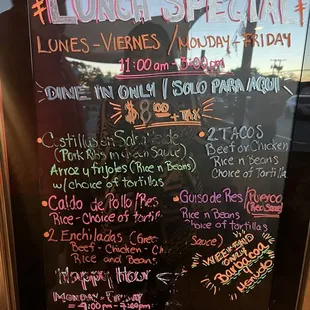 LUNCH SPECIAL
LUNES - VIERNES / MONDAY - FRIDAY
11:00 am - 3:00 pm
DINE IN ONLY / SOLO PARA AQUI
$8.00 + TAX
Costillas en Salsa
(Pork Ribs in Green Sauce)
Arroz y frijoles (Rice n Beans)
w/choice of tortillas
Caldo de Pollo/Res
Rice - Choice of tortillas
2 Enchiladas (Green
Beef - Chicken - Ch
Rice and Beans
2 TACOS
Beef or Chicken
Rice n Beans
Choice of Tortillas
Guiso de Res / Puerco
Rice n Beans
Choice of tortillas
Sauce)
WEEKEND
ONLY
Barbacoa
y
Menudo
Happy Hour
MONDAY - FRIDAY